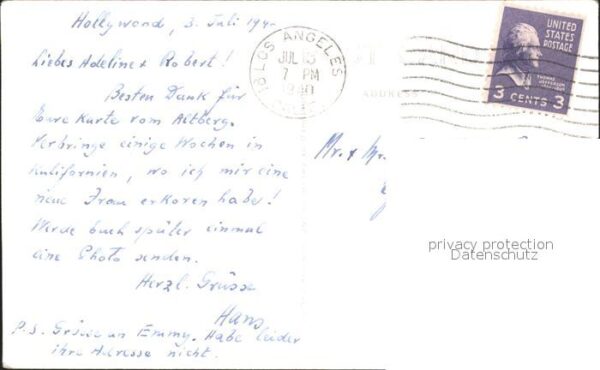 Hollywood, 3. Juli 194-
Liebes Adeline + Robert!
Besten Dank für
Eure Karte vom Altberg.
Verbringe einige Wochen in
Kalifornien, wo ich mir eine
neue Frau erkoren habe!
Werde Euch später einmal
eine Photo senden.
Herzl. Grüsse
Hans
P.S. Grüsse an Emmy. Habe leider
ihre Adresse nicht.
LOS ANGELES
JUL 13
7 PM
1940
ADDRESS
UNITED
STATES
POSTAGE
THOMAS
JEFFERSON
3 CENTS 3
Mr. + Mr.
privacy protection
Datenschutz